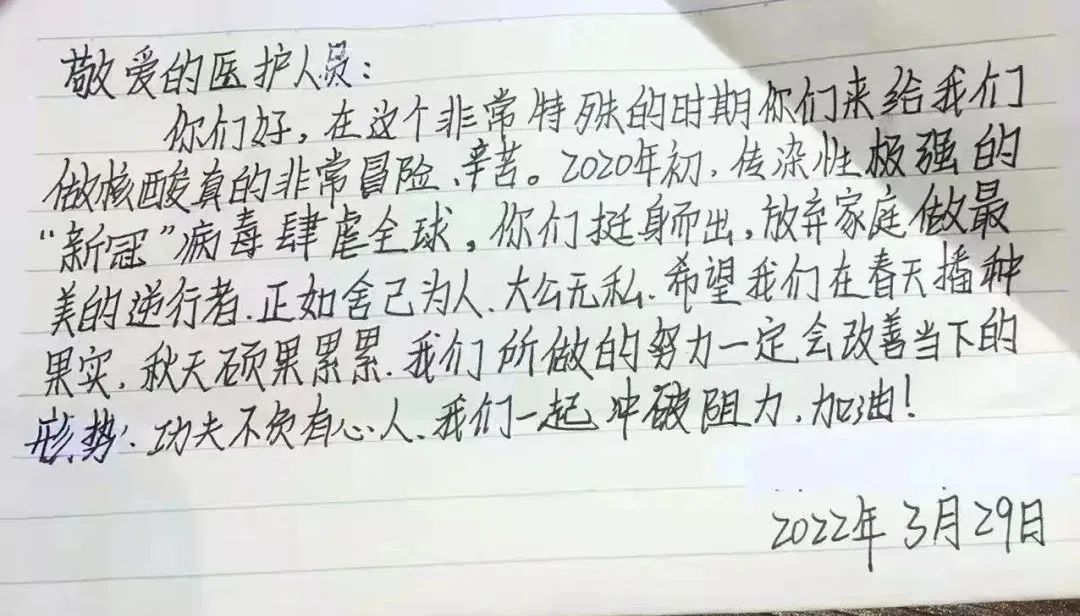 敬爱的医护人员：
你们好，在这个非常特殊的时期你们来给我们
做核酸真的非常冒险、辛苦。2020年初，传染性极强的
“新冠”病毒肆虐全球，你们挺身而出，放弃家庭做最
美的逆行者.正如舍己为人、大公无私.希望我们在春天播种
果实，秋天硕果累累.我们所做的努力一定会改善当下的
形势.功夫不负有心人、我们一起冲破阻力，加油！
2022年3月29日